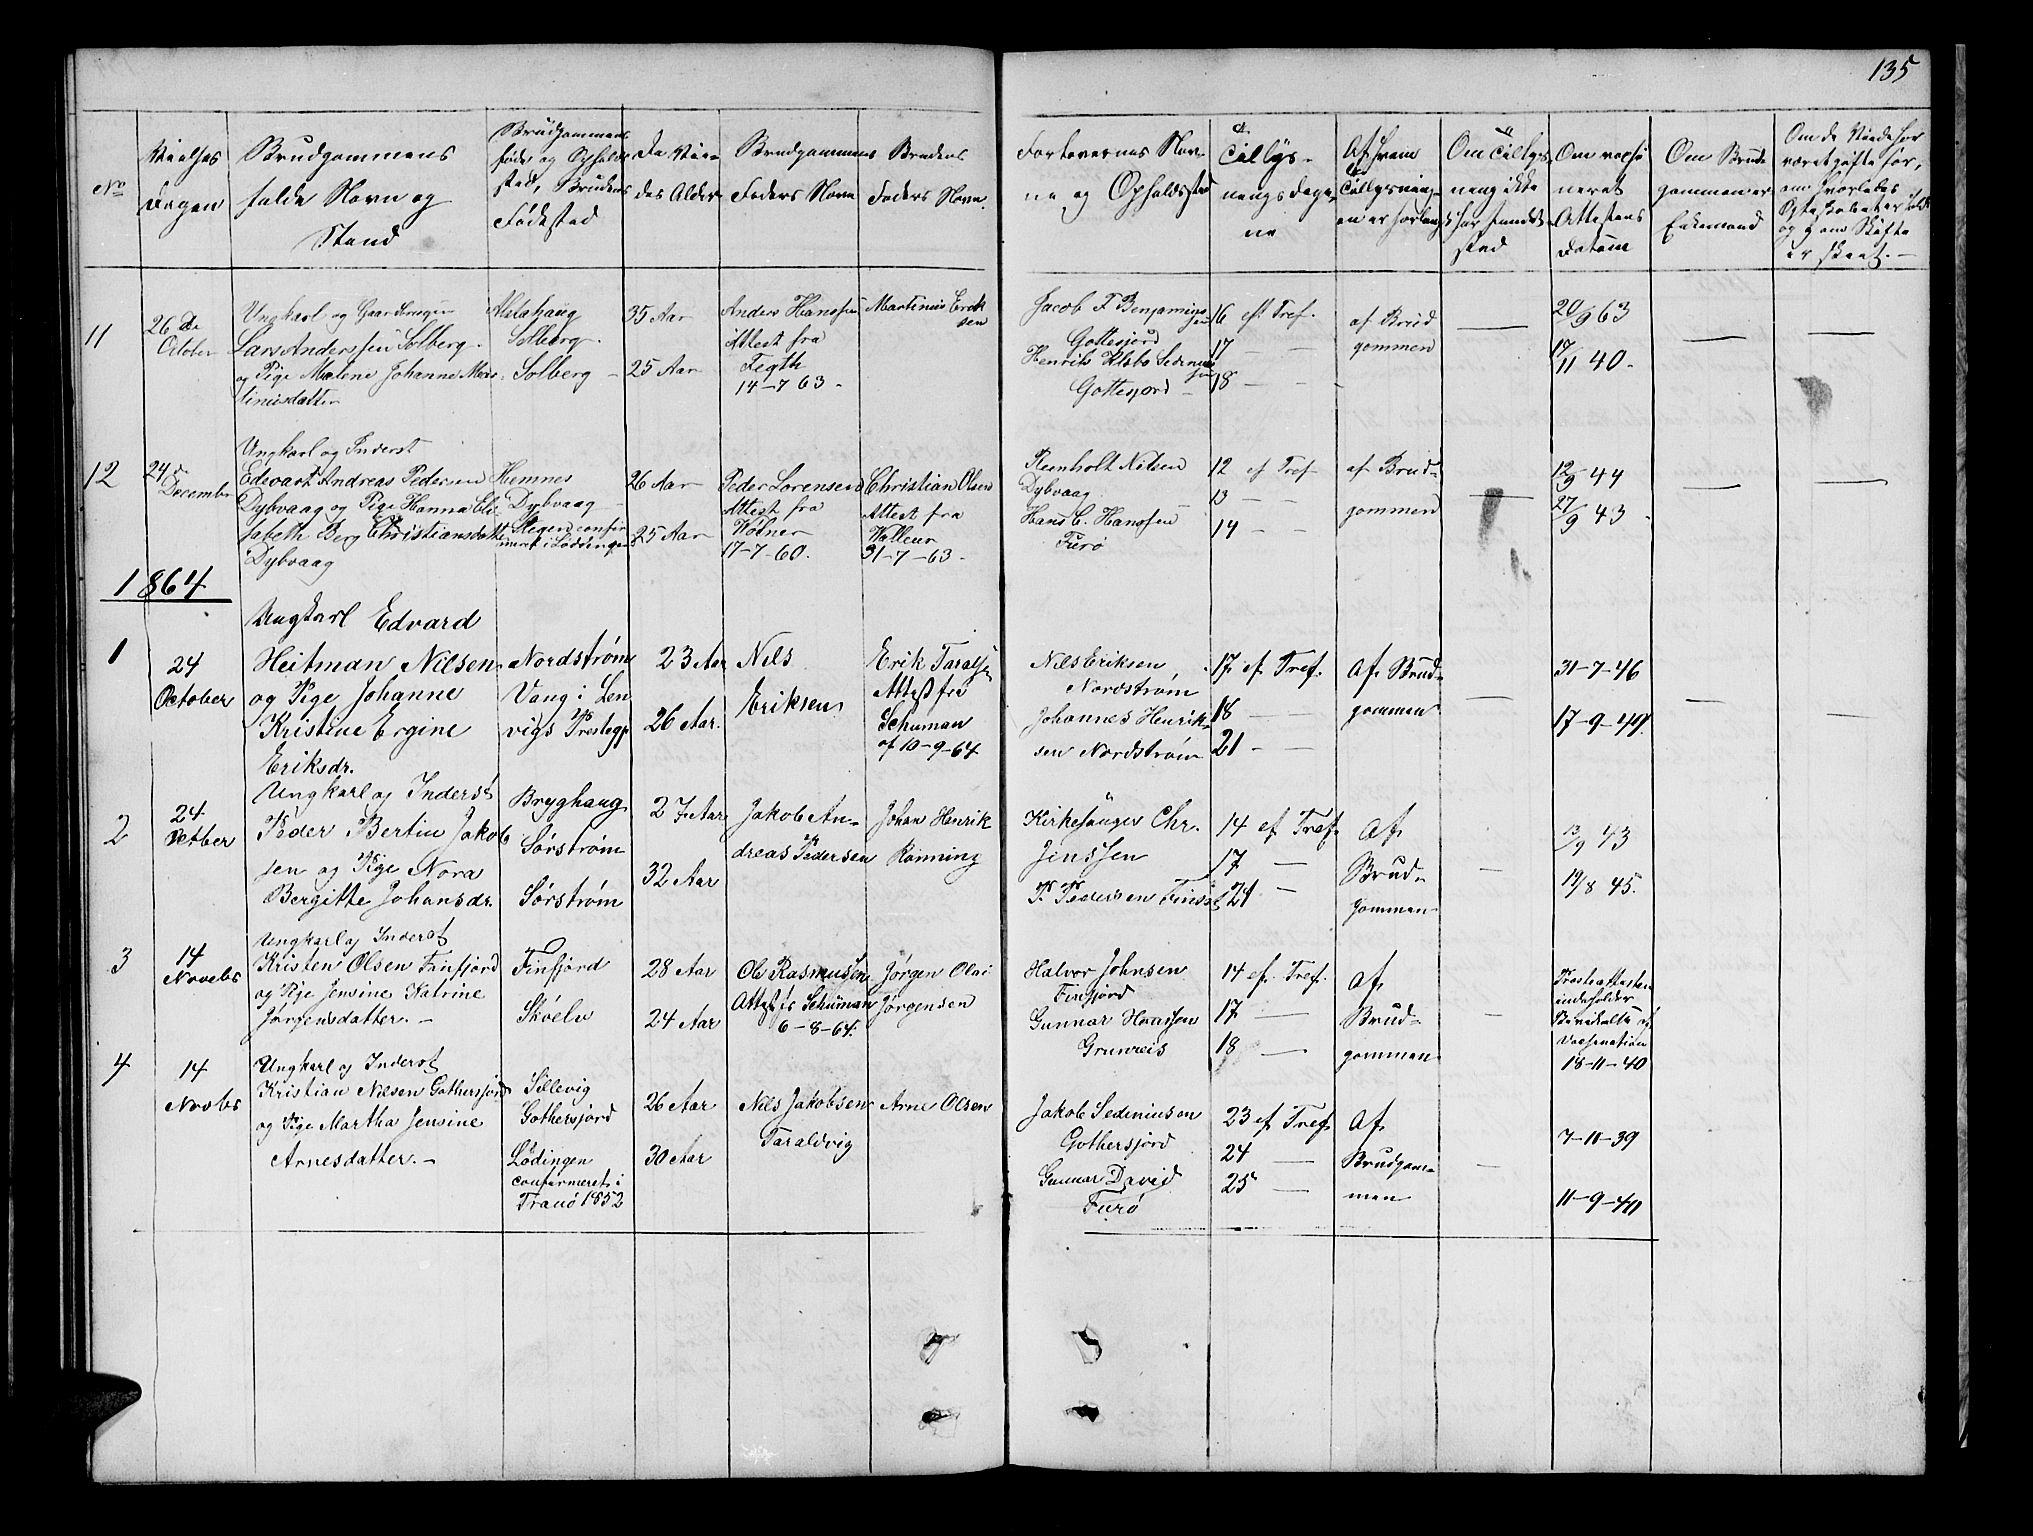 135
No
Vielses
Dagen
Brudgommens
fulde Navn og
Stand
Brudgommens
føde og Opholds
sted, Brudens
Fødested
De Vie-
des Alder
Brudgommens
Faders Navn
Brudens
Faders Navn.
Forlovernes Nav-
ne og Opholdssted
Tillys-
ningsdage-
ne
Af hvem
Tillysning-
en er forlangt
Om Tillys-
ning ikke
har fundet
sted
Om vacsi
neret
Attestens
Datum
Om Brud-
gommen er
Enkemand
Om de Viede før
været gifte før,
om hvorledes
Ægteskabet er
og om Skifte
er skeet.
11
26 de
October
Ungkarl og Gaardbruger
Lars Anderssen Solberg.
og Pige Malene Johanne Mar-
tinusdatter
Alstahaug
Solberg.
Solberg
35 Aar
25 Aar
Anders Hanssen
Attest fra
14-7 63
Martinus Erik
sen
Jacob F Benjamins
sen
Gottesjord
Henrik Sedenius
sen
Gottesjord
16 ef Tref.
17 — —
18 — —
af Brud
gommen
20/9 63
17/11 40.
12
24 de
December
Ungkarl og Inderst
Edevart Andreas Pedersen
Dybvaag og Pige Hanna Eli
sabeth Berg Christiansdatt
Dybvaag
Hemnes
Dybvaag
Stegen confir
meret i Lødingen
26 Aar
25 Aar
Peder Lorensen
Attest fra
17-7-60.
Christian Olsen
Attest fra
31-7-63
Reinholt Nilsen
Dybvaag
Hans C. Hanssen
Furø
12 ef Tref
13 — —
14 — —
af Brud-
gommen
12/9 44
27/9 43
1864
1
24
October
Ungkarl Edvard
Heitman Nilsen
og Pige Johanne
Kristine Ergine
Eriksdr.
Nordstrøm
Vang i Len
vigs Prestegj
23 Aar
26 Aar.
Nils
Eriksen
Erik Taralsen
Attest fra
Schuman
af 10-9-64
Nils Eriksen
Nordstrøm
Johannes Henrik-
sen Nordstrøm
17 ef Tref.
18 —
21 —
Af Brud-
gommen
31-7-46
17-9-44.
2
24
Octber
Ungkarl og Inderst
Peder Bertin Jakob
sen og Pige Nora
Bergitte Johansdr.
Bryghaug
Sørstrøm
Sørstrøm
27 Aar
32 Aar
Jakob An-
dreas Pedersen
Johan Henrik
Rønning
Kirkesanger Chr.
Jenssen
P. Pedersen
14 ef Tref.
17 —
21 —
Af
Brud-
gommen
13/9 43
19/8 45.
3
14
Novebr
Ungkarl og Inderst
Kristen Olsen Finfjord
og Pige Jensine Katrine
Jørgensdatter. —
Finfjord
Skoelv
28 Aar
24 Aar
Ole Rasmussen
Attest fr Schuman
6-8-64.
Jørgen Olai
Jørgensen
Halvor Johnsen
Finfjord
Gunnar Hanssen
Grunreis
14 ef. Tref.
17 —
18 —
Af
Brud-
gommen
Presteattesten
indeholder
Bevidelse af
Vacsination
18-11-40
4
14
Novbr
Ungkarl og Inderst
Kristian Nilsen Gothersjord
og Pige Martha Jensine
Arnesdatter. —
Sillevig
Gothersjord
Lødingen
Confirmeret i
Tranø 1852
26 Aar
30 Aar
Nils Jakobsen
Taraldvig
Arne Olsen
Jakob Sedeniusen
Gothersjord
Gunnar David
Furø
23 ef Tref.
24 —
25 —
Af
Brudgom-
men
7-11-39
11-9-40